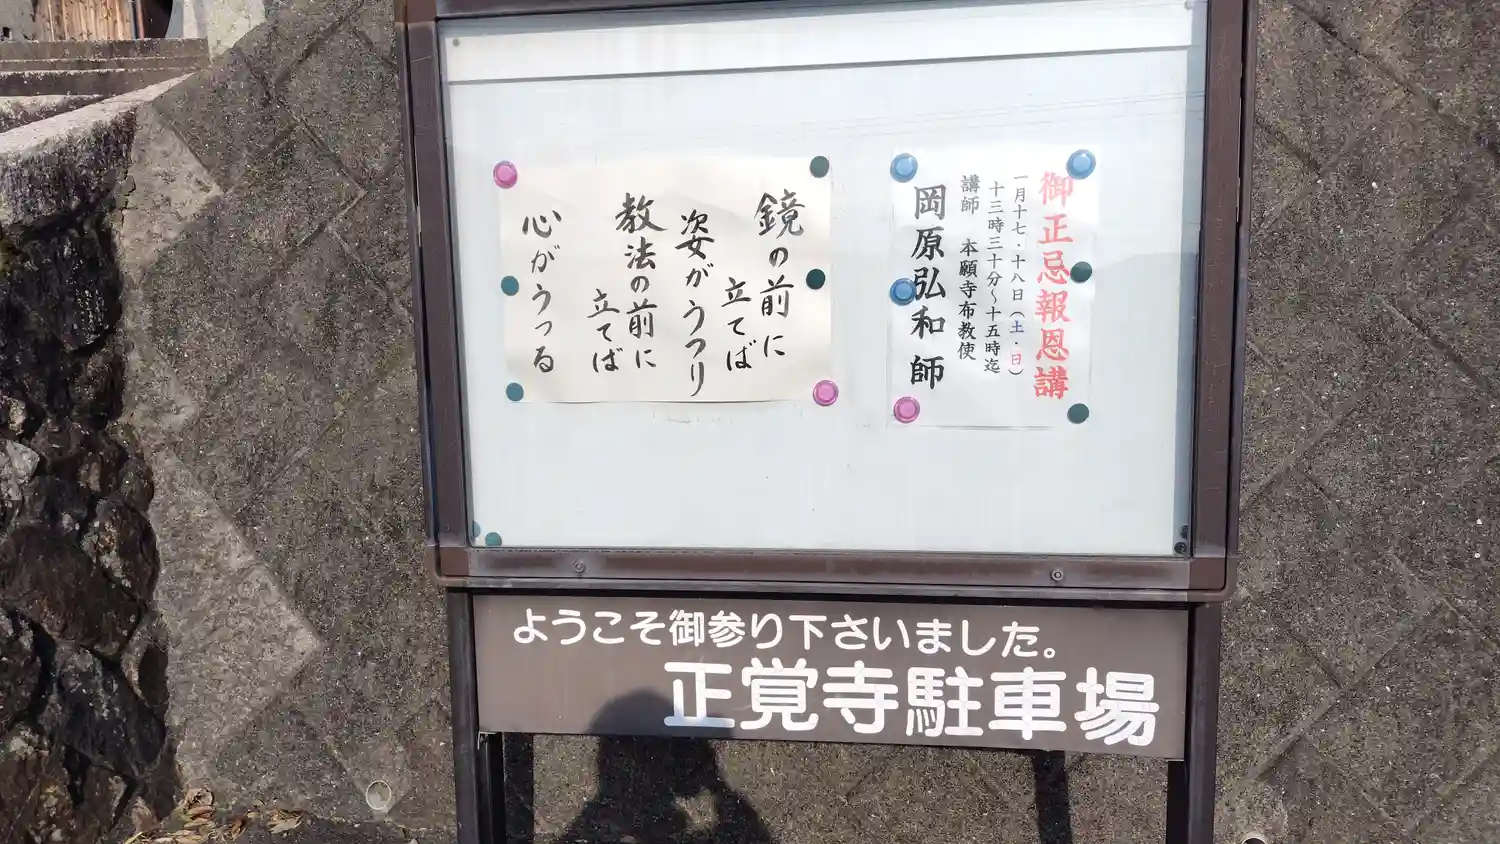 御正忌報恩講
一月十七・十八日（土・日）
十三時三十分～十五時迄
講師　本願寺布教使
岡原弘和 師
鏡の前に
立てば
姿がうつり
教法の前に
立てば
心がうつる
ようこそ御参り下さいました。
正覚寺駐車場